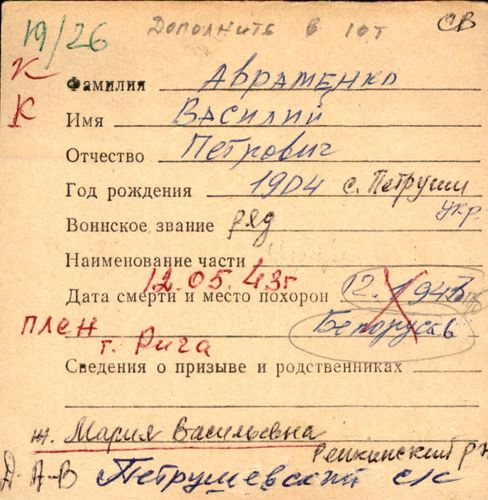 19/26 Дополнить в 1 от СВ
К Фамилия Авраменко
К Имя Василий
Отчество Петрович
Год рождения 1904 с. Петруши
укр.
Воинское звание ряд
Наименование части
12.05.43г
Дата смерти и место похорон 12.1943
плен Белорусь
г. Рига
Сведения о призыве и родственниках
ж. Мария Васильевна
Репкинский р-н
Д-А-В Петрушевский с/с